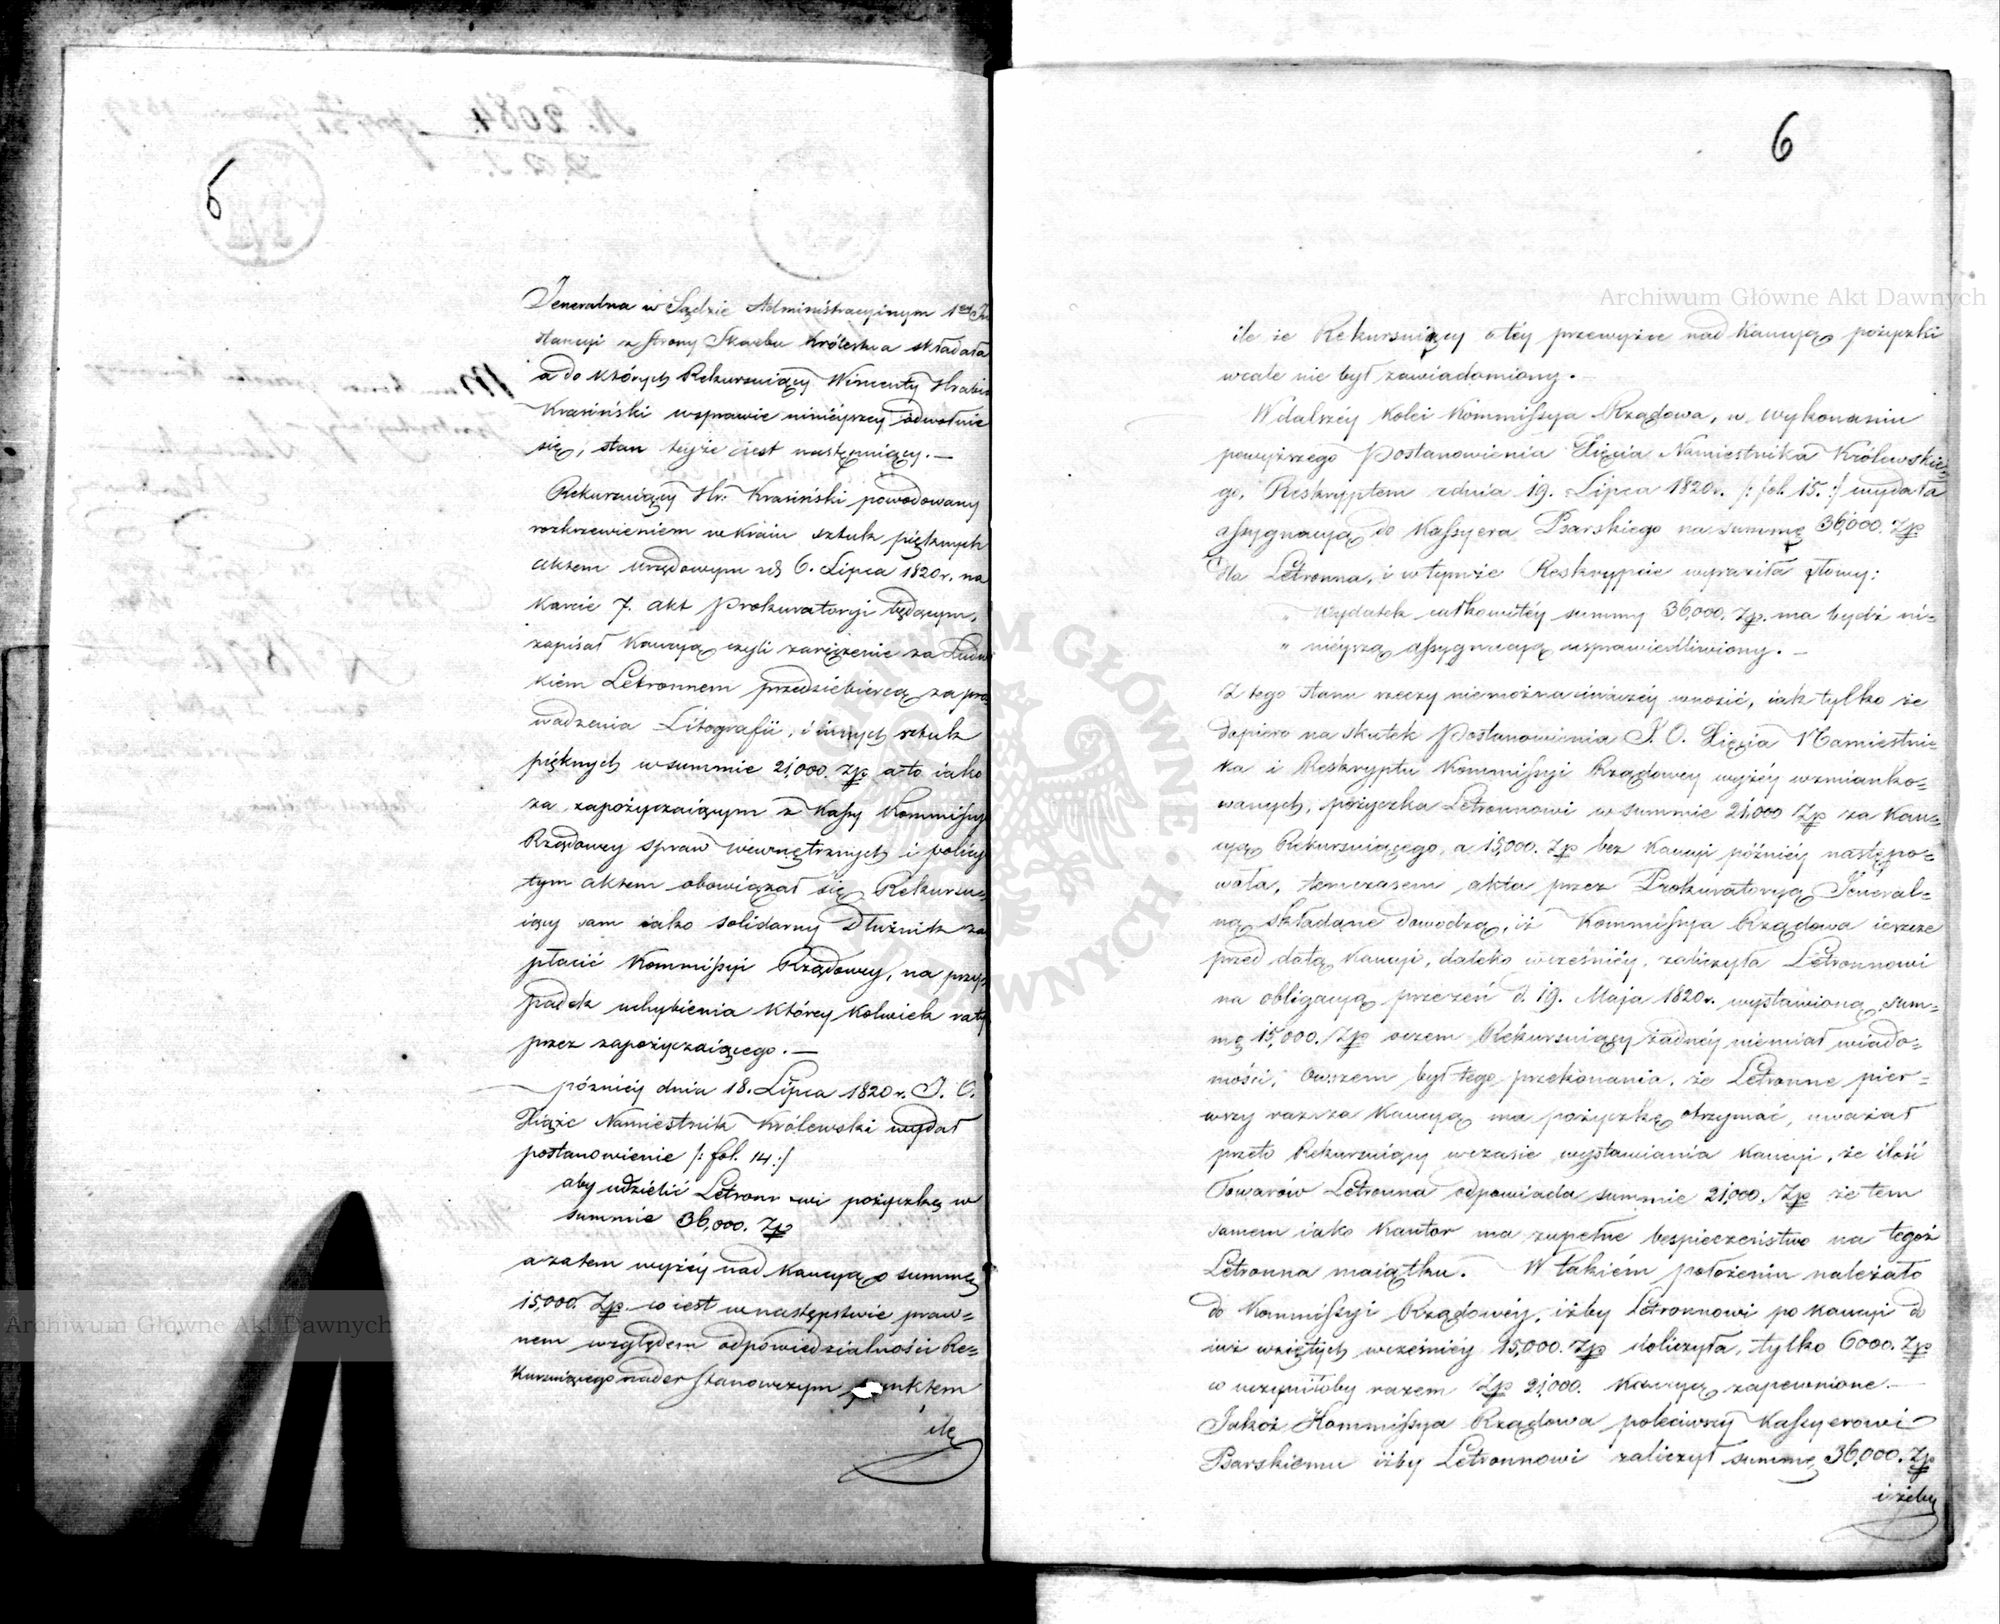 5
Jeneralna w Sądzie Administracyinym 1ey In
stancyi z strony Skarbu Królestwa składała
a do których Rekursuiący Wincenty Hrabia
Krasiński w sprawie ninieyszey odwołuie
się, stan teyże iest następuiący. —
Rekursuiący Hr: Krasiński powodowany
rozkrzewieniem w Kraiu sztuk pięknych
aktem urzędowym 6. Lipca 1820r. na
karcie 7. akt Prokuratoryi będącym,
zapisał Kaucyą czyli zaręczenie za Ludwi
kiem Letronnem przedsiebiercą zapro
wadzenia Litografii, i innych sztuk
pięknych w summie 21,000. Zp. a to iako
za zapożyczaiącym z Kassy Kommissyi
Rządowey spraw wewnętrznych i policyi
tym aktem obowiązał się Rekursu-
iący sam iako solidarny Dłużnik za
płacić Kommissyi Rządowey, na przy-
padek uchybienia którey kolwiek raty
przez zapożyczaiącego. —
późniey dnia 18. Lipca 1820r. J. O.
Xiąże Namiestnik Królewski wydał
postanowienie /: fol. 14 :/
aby udzielić Letronnowi pożyczkę w
summie 36,000. Zp
a zatem wyżéy nad Kaucyą o summę
15,000. Zp. co iest w następstwie praw=
nem względem odpowiedzialności Re=
kursuiącego nader stanowczym punktem
ile
6
ile że Rekursuiący o téy przewyżce nad Kaucyą pożyczki
wcale nie był zawiadomiony. —
W dalszéy kolei Kommissya Rządowa, w wykonaniu
powyższego Postanowienia Xięcia Namiestnika Królewskie=
go, Reskryptem z dnia 19. Lipca 1820r. /: fol. 15. :/ wydała
assygnacyą do Kassyera Psarskiego na summę 36,000. Zp
dla Letronna, i w tymże Reskrypcie wyraziła słowy:
„ wydatek całkowitéy summy 36,000. Zp. ma bydź ni=
„ nieyszą assygnacyą usprawiedliwiony. —
Z tego stanu rzeczy nie można inaczéy wnosić, iak tylko że
dopiero na skutek Postanowienia J. O. Xięcia Namiestni=
ka i Reskryptu Kommissyi Rządowey wyżéy wzmianko=
wanych, pożyczka Letronnowi w summie 21,000 Zp za Kau=
cyą Rekursuiącego, a 15,000. Zp bez Kaucyi późniéy nastąpo=
wała, temczasem akta przez Prokuratoryą Jeneral=
ną składane dowodzą, iż Kommissya Rządowa ieszcze
przed datą Kaucyi, daleko wcześniéy, zaliczyła Letronnowi
na obligacyą przezeń d. 19. Maja 1820r. wystawioną, sum=
mę 15,000. Zp o czem Rekursuiący żadnéy niemiał wiado=
mości, owszem był tego przekonania, że Letronne pier=
wszy raz za Kaucyą ma pożyczkę otrzymać, uważał
przeto Rekursuiący w czasie wystawiania Kaucyi, że ilość
Towarów Letronna odpowiada summie 21,000. Zp że tem
samem iako Kantor ma zupełne bespieczeństwo na tegoż
Letronna maiątku. W takiém położeniu należało
do Kommissyi Rządowéy, iżby Letronnowi po kaucyi do
iuż wziętych wcześniéy 15,000. Zp doliczyła, tylko 6000. Zp
co uczyniłoby razem Zp 21,000. Kaucyą zapewnione. —
Jakoż Kommissya Rządowa poleciwszy Kassyerowi
Psarskiemu iżby Letronnowi zaliczył summę 36,000. Zp
i żeby